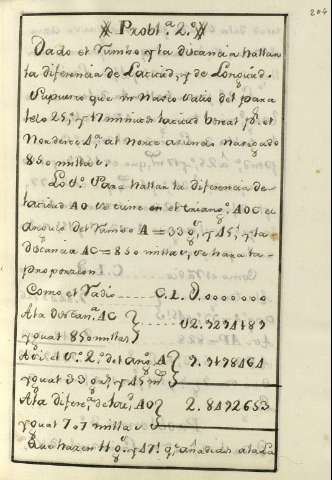 204
Probl.ª 2.º
Dado el Rumbo y la distancia hallar
la diferencia de Latitud, y de Longitud.
Supuesto que un Navio salio del para
lelo 25º y 17 minutos de latitud boreal por el
Nordeste 4ª al norte aviendo navegado
850 millas.
Lo 1º Para hallar la diferencia de
latitud AO se tiene en el triang.º AOC el
angulo del Rumbo A = 33 gº y 45' y la
distancia AC = 850 millas, se hara la
proporcion.
Como el Radio C. L. 0.0000000
A la distan.ª AC
ygual 850 millas 02.9294189
Asi el S.º 2.º del ang.º A
ygual 33 gº y 45 m.ª 9.9198464
A la difer.ª de lat. AO 2.8492653
ygual 707 millas
Que hazen 11 gº y 47' q.e añadidos a la La